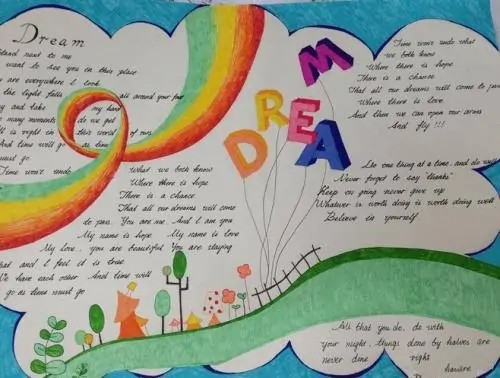 Dream
stand next to me
want to see you in this place
you are everywhere I look
the light falls all around your feet
and take my hand
many moments do we get
all is right in this world of ours
And time will go as time
must go
Time won't ends what we both know
Where there is hope
There is a chance
That all our dreams will come
to pass. You are me. And I am you
My name is hope My name is love
My love, you are beautiful You are staying
that and I feel it is true
We have each other And time will
go as time must go
DREAM
Time won't ends what
we both know
Where there is hope
There is a chance
That all our dreams will come to pass
Where there is love
And then we can open our arms
And fly!!!
one thing at a time, and do
Never forget to say "thanks"
Keep on going never give up
Whatever is worth doing is worth doing well
Believe in yourself
All that you do, do with
your might, things done by halves are
never done right